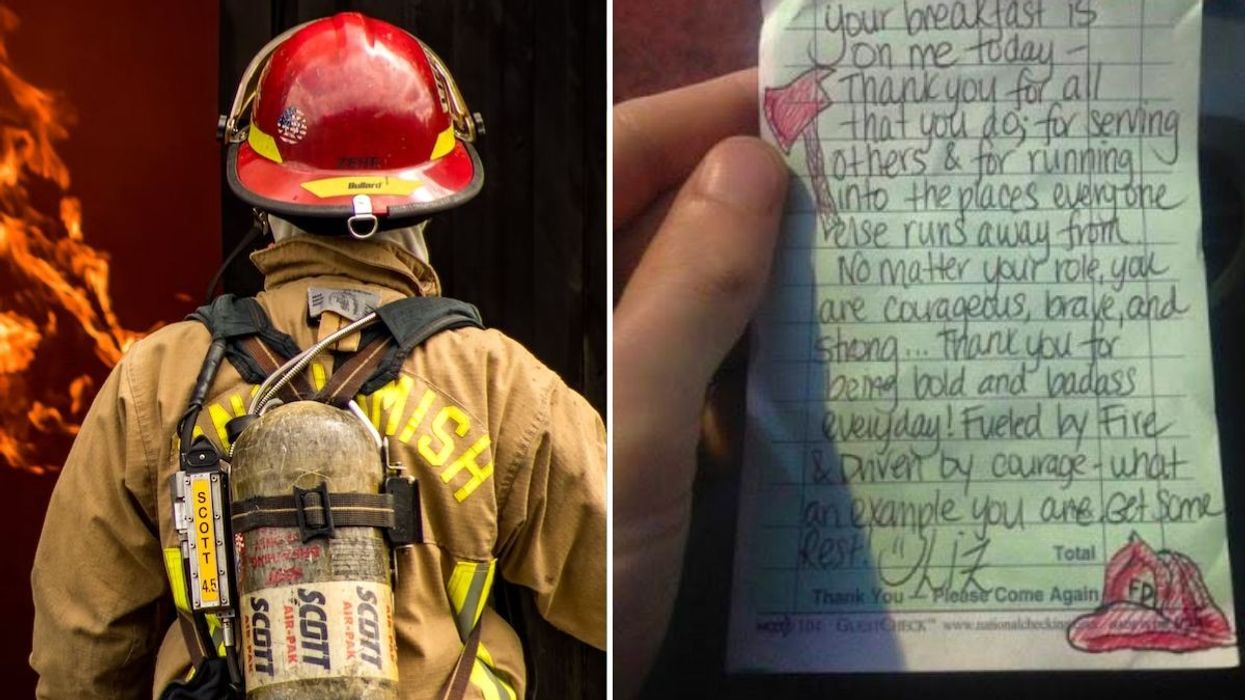 ZEHR
Bullard
MISH
SCOTT
4.5
SCOTT
AIR-PAK
SCOTT
AIR-PAK
SCOTT
your breakfast is
on me today -
Thank you for all
that you do; for serving
others & for running
into the places everyone
else runs away from
No matter your role, you
are courageous, brave, and
strong... Thank you for
being bold and badass
everyday! Fueled by Fire
& Driven by courage - what
an example you are. Get Some
Rest. Liz
Total
Thank You Please Come Again
FD
GUESTCHECK™ www.nationalchecking